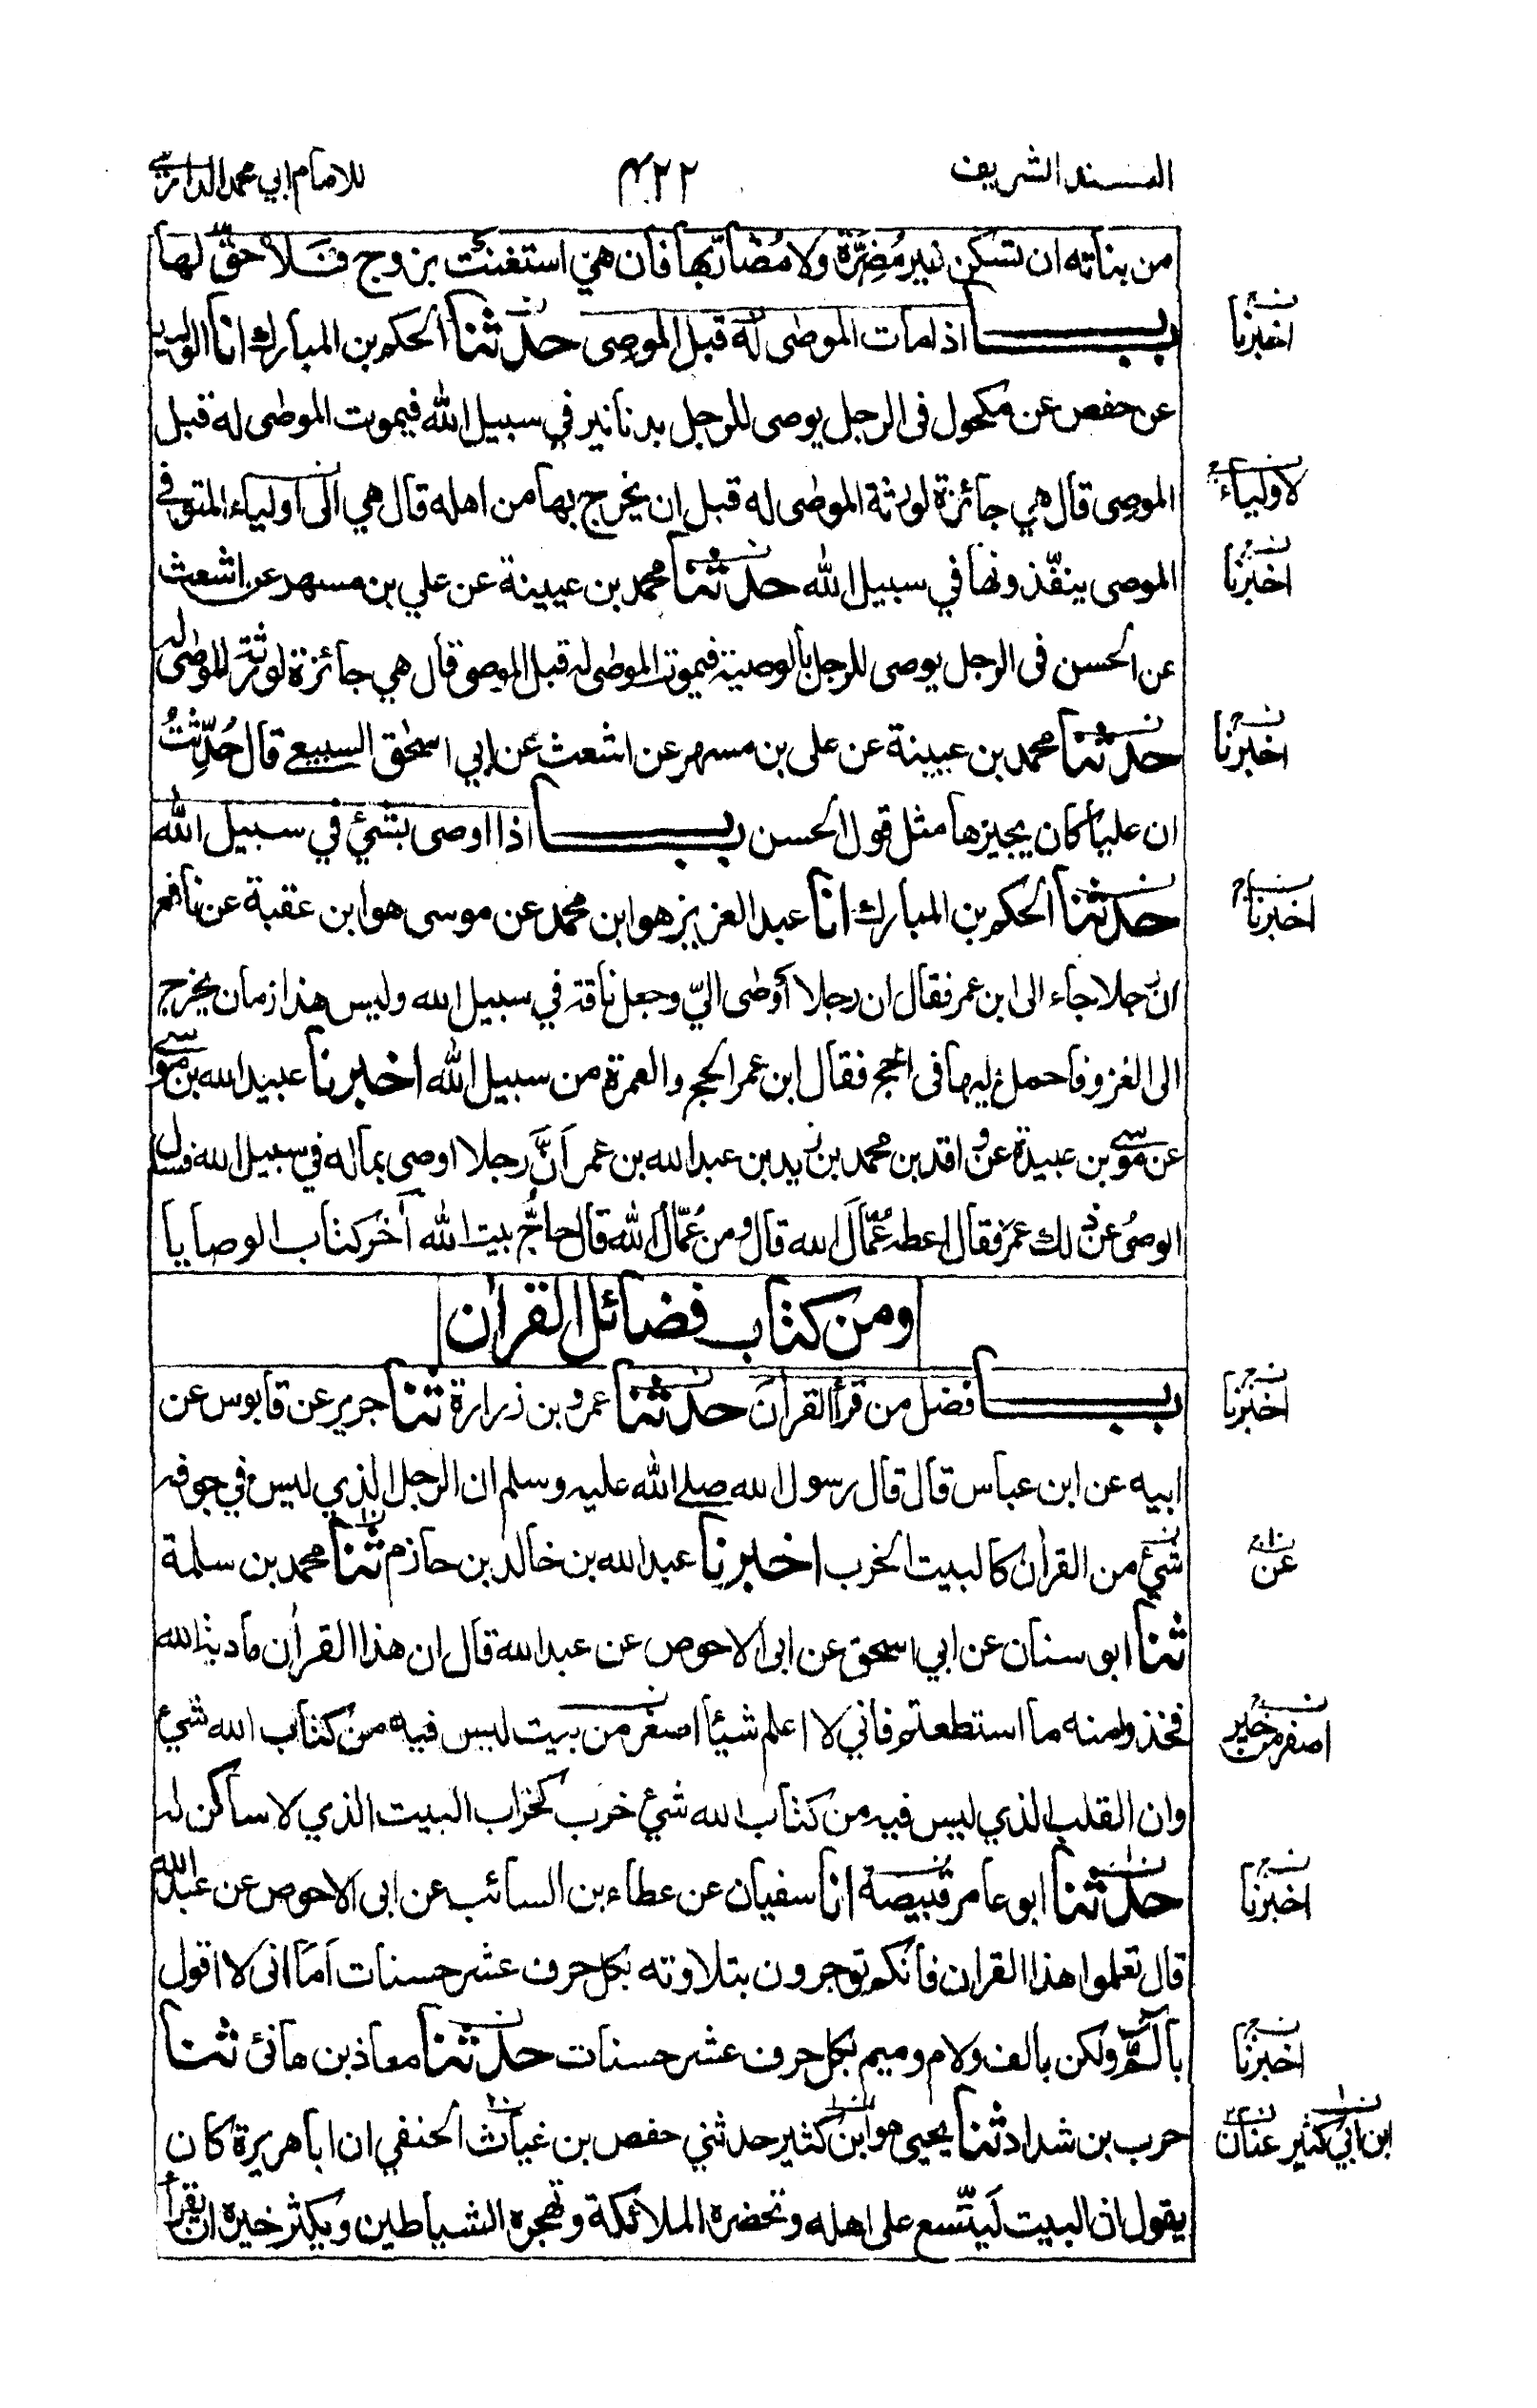 المسند الشريف ٤٢٢ للامام ابي محمد الدارمي
من بناته ان تسكن غير مُضِرَّة ولا مُضارّ بها فان هي استغنت بزوج فلا حقّ لها
باب اذا مات الموصى له قبل الموصي حدثنا الحكم بن المبارك انا الوليد
اخبرنا
عن حفص عن مكحول فى الرجل يوصى للرجل بدنانير في سبيل الله فيموت الموصى له قبل
الموصي قال هي جائزة لورثة الموصى له قبل ان يخرج بها من اهله قال هي الى اولياء المتوفى
لاولياء
الموصى ينفّذونها في سبيل الله حدثنا محمد بن عيينة عن علي بن مسهر عن اشعث
اخبرنا
عن الحسن فى الرجل يوصى للرجل بالوصية فيموت الموصى له قبل الموصي قال هي جائزة لورثة الموصى له
حدثنا محمد بن عيينة عن على بن مسهر عن اشعث عن ابي اسحٰق السبيعي قال حُدِّثتُ
اخبرنا
ان عليا كان يجيزها مثل قول الحسن باب اذا اوصى بشئ في سبيل الله
حدثنا الحكم بن المبارك انا عبد العزيز هو ابن محمد عن موسى هو ابن عقبة عن نافع
اخبرنا
ان رجلا جاء الى ابن عمر فقال ان رجلا أوصى اليّ وجعل ناقة في سبيل الله وليس هذا زمان يخرج
الى الغزو فاحمل عليها فى الحج فقال ابن عمر الحج والعمرة من سبيل الله اخبرنا عبيد الله بن موسى
عن موسى بن عبيدة عن واقد بن محمد بن زيد بن عبد الله بن عمر اَنَّ رجلا اوصى بماله في سبيل الله فسأل
الوصي عن ذلك عمر فقال اعطه عُمّالَ الله قال ومن عُمّالُ الله قال حاجُّ بيت الله آخر كتاب الوصايا
ومن كتاب فضائل القرآن
باب فضل من قرأ القرآن حدثنا عمرو بن زرارة ثنا جرير عن قابوس عن
اخبرنا
ابيه عن ابن عباس قال قال رسول الله صلى الله عليه وسلم ان الرجل الذي ليس في جوفه
شئ من القرآن كالبيت الخرب اخبرنا عبد الله بن خالد بن حازم ثنا محمد بن سلمة
عن
ثنا ابو سنان عن ابي اسحق عن ابى الاحوص عن عبد الله قال ان هذا القرآن مادبة الله
فخذوا منه ما استطعتم فاني لا اعلم شيئا اصغر من بيت ليس فيه من كتاب الله شئ
اصفر من خير
وان القلب الذي ليس فيه من كتاب الله شئ خرب كخراب البيت الذي لا ساكن له
حدثنا ابو عامر قبيصة انا سفيان عن عطاء بن السائب عن ابى الاحوص عن عبد الله
اخبرنا
قال تعلموا هذا القرآن فانكم توجرون بتلاوته بكل حرف عشر حسنات اَما انى لا اقول
بالٓمّٓ ولكن بالف ولام وميم بكل حرف عشر حسنات حدثنا معاذ بن هانئ ثنا
اخبرنا
حرب بن شداد ثنا يحيى هو ابن كثير حدثني حفص بن غياث الحنفي ان ابا هريرة كان
ابن ابي كثير عنان
يقول ان البيت لَيتّسع على اهله وتحضره الملائكة وتهجره الشياطين ويكثر خيره ان يقرأ